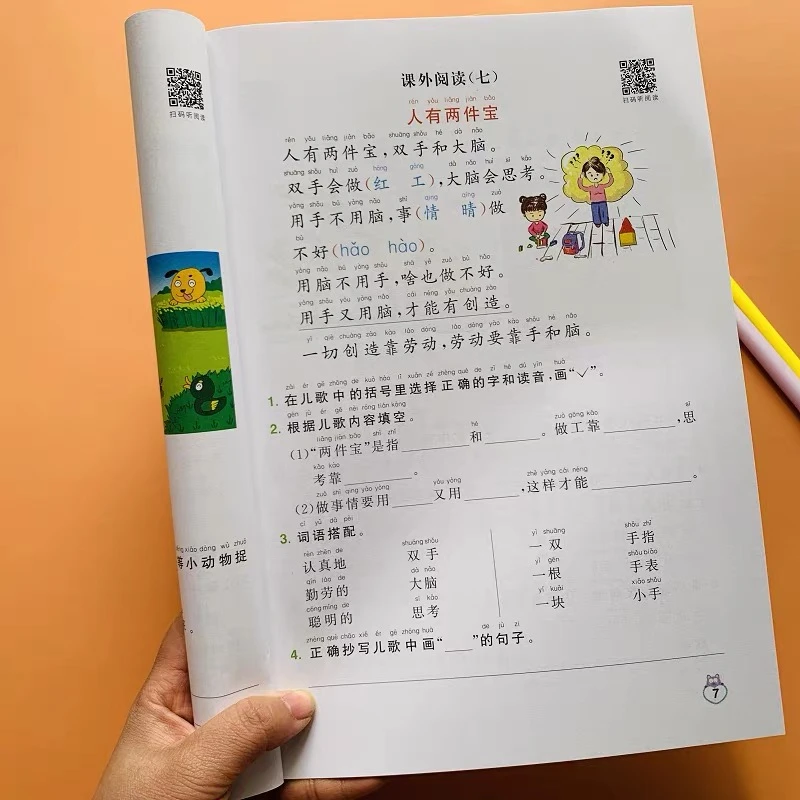 扫码听阅读
课外阅读(七)
扫码听阅读
rén yǒu liǎng jiàn bǎo
人有两件宝
rén yǒu liǎng jiàn bǎo shuāng shǒu hé dà nǎo
人有两件宝,双手和大脑。
shuāng shǒu huì zuò hóng gōng dà nǎo huì sī kǎo
双手会做(红 工),大脑会思考。
yòng shǒu bú yòng nǎo shì qíng qíng zuò
用手不用脑,事(情 晴)做
bù
不好(hǎo hào)。
yòng nǎo bú yòng shǒu shá yě zuò bù hǎo
用脑不用手,啥也做不好。
yòng shǒu yòu yòng nǎo cái néng yǒu chuàng zào
用手又用脑,才能有创造。
yí qiè chuàng zào kào láo dòng láo dòng yào kào shǒu hé nǎo
一切创造靠劳动,劳动要靠手和脑。
zài ér gē zhōng de kuò hào lǐ xuǎn zé zhèng què de zì hé dú yīn huà
1. 在儿歌中的括号里选择正确的字和读音,画“✓”。
gēn jù ér gē nèi róng tián kòng
2. 根据儿歌内容填空。
liǎng jiàn bǎo shì zhǐ hé zuò gōng kào sī
(1)“两件宝”是指______和______。做工靠______,思
kǎo kào
考靠______。
zuò shì qing yào yòng yòu yòng zhè yàng cái néng
(2)做事情要用____又用______,这样才能________。
cí yǔ dā pèi
3. 词语搭配。
rèn zhēn de shuāng shǒu yì shuāng shǒu zhǐ
认真地 双手 一双 手指
qín láo de dà nǎo yì gēn shǒu biǎo
勤劳的 大脑 一根 手表
cōng míng de sī kǎo yí kuài xiǎo shǒu
聪明的 思考 一块 小手
zhèng què chāo xiě ér gē zhōng huà de jù zi
4. 正确抄写儿歌中画“___”的句子。
xiǎo dòng wù zhuō
等小动物捉
。
7